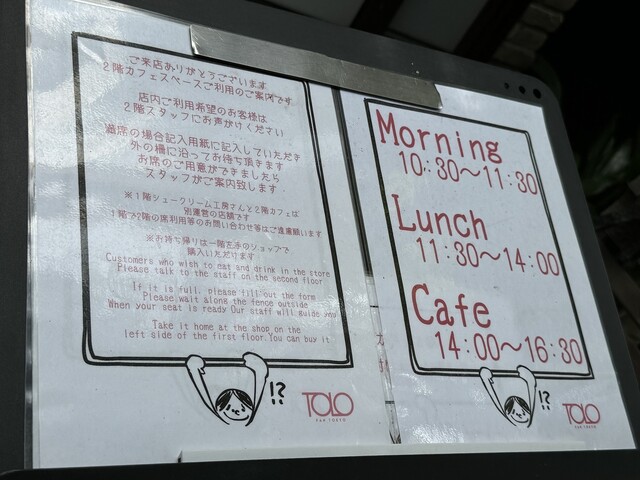 ご来店ありがとうございます
2階カフェスペースご利用のご案内です
店内ご利用希望のお客様は
2階スタッフにお声がけください
満席の場合記入用紙に記入していただき
外の柵に沿ってお待ち頂きます
お席のご用意ができましたら
スタッフがご案内致します
※1階シュークリーム工房さんと2階カフェは
別運営の店舗です
1階で2階の席利用等のお問い合わせ等はご遠慮願います
※お持ち帰りは一階左手のショップで
購入いただけます
Customers who wish to eat and drink in the store
Please talk to the staff on the second floor
If it is full, please fill out the form
Please wait along the fence outside
When your seat is ready Our staff will guide you
Take it home at the shop on the
left side of the first floor.You can buy it
!?
TOLO
PAN TOKYO
Morning
10:30～11:30
Lunch
11:30～14:00
Cafe
14:00～16:30
!?
TOLO
PAN TOKYO